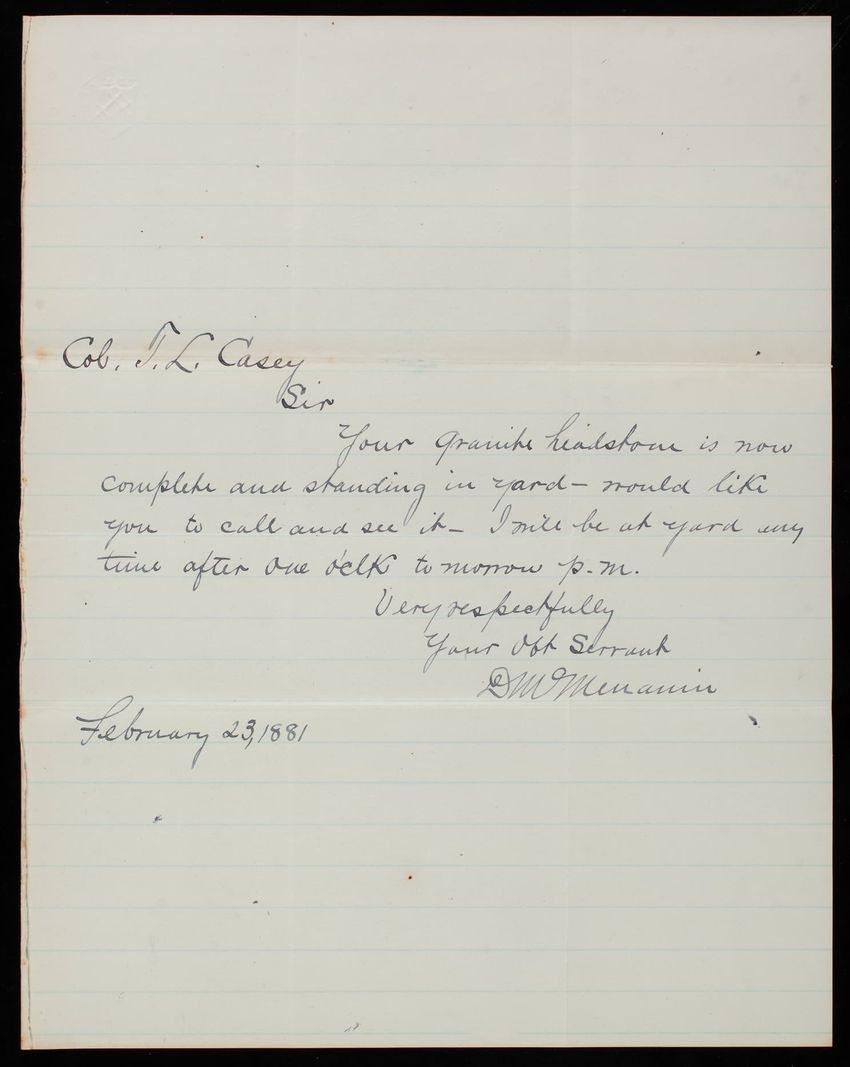 Col. T. L. Casey
Sir
Your granite headstone is now
complete and standing in yard – would like
you to call and see it – I will be at yard any
time after one o'clk tomorrow p.m.
Very respectfully
Your Obt Servant
D McMenamin
February 23, 1881